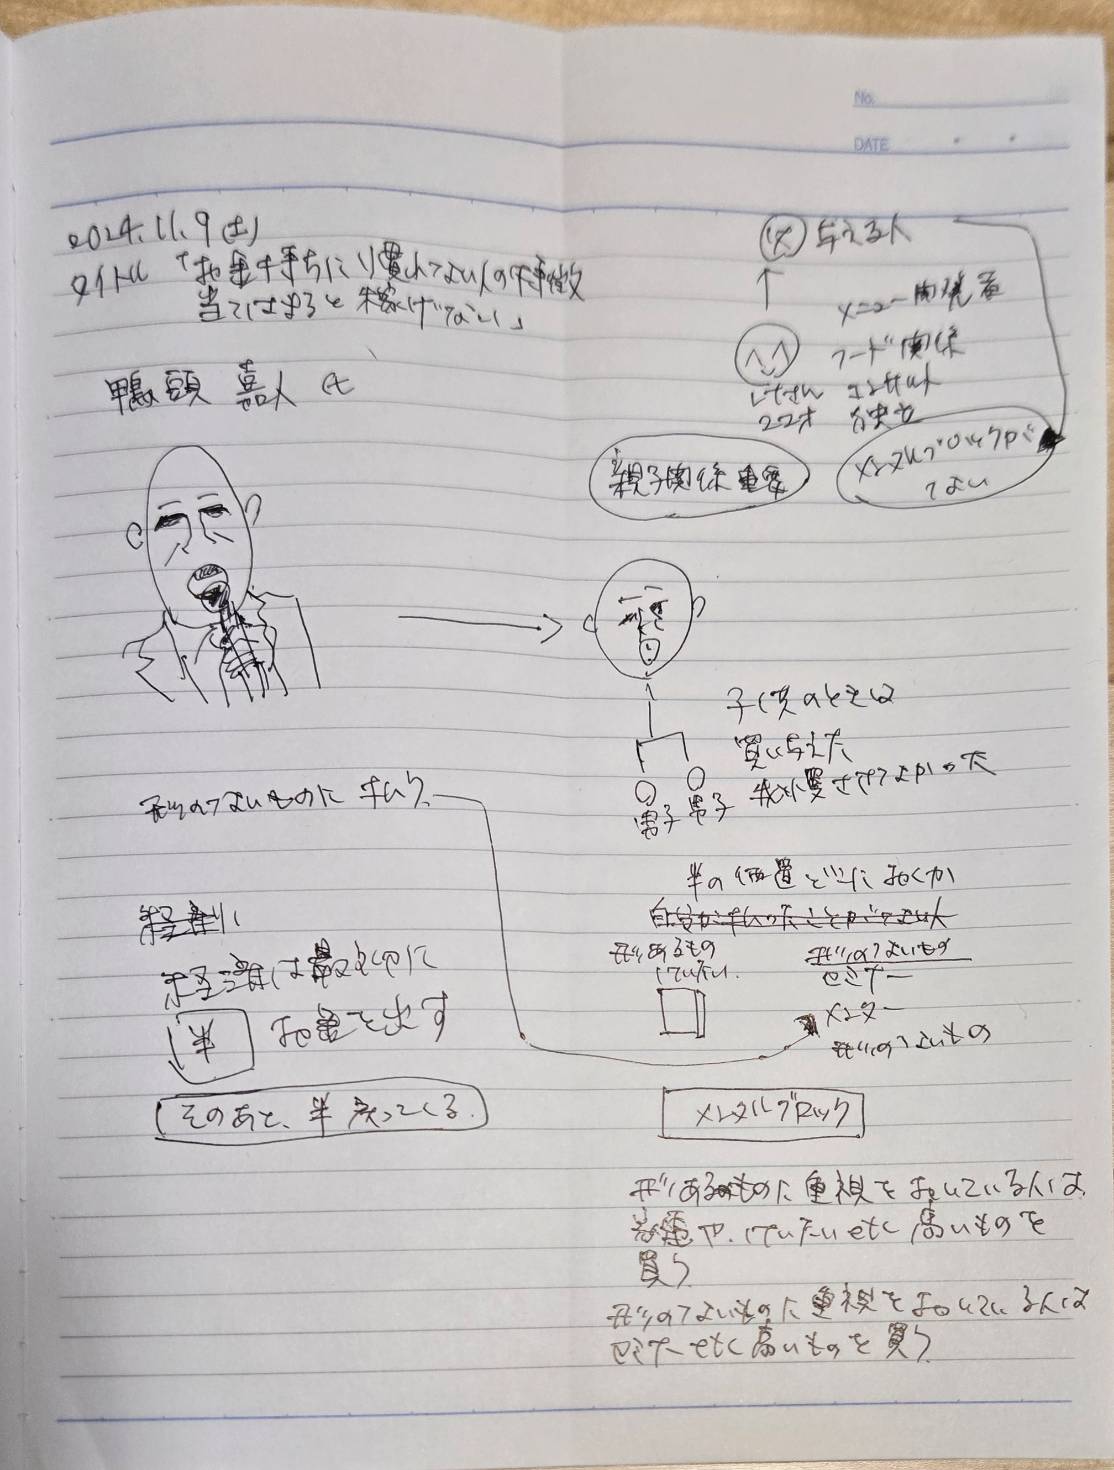 No.
DATE
2024.11.9(土)
タイトル「お金持ちになれない人の特徴
当てはまると稼げない」
鴨頭 嘉人 氏
父 与える人
メニュー開発者
フード関係
コンサルト
22才
親子関係重要
メンタルブロックが
ない
子供のときは
買い与えた
男子 男子
形のないものに払う
半の価置どこにおくか
自分が払ったことがない人
形あるもの
けいたい
形のないもの
セミナー
メンター
形のないもの
経済は最初に
半 お金を出す
そのあと、半戻ってくる。
メンタルブロック
形あるものに重視をおいている人は
家電や、けいたいetc高いものを
買う
形のないものに重視をおいている人は
セミナーetc高いものを買う